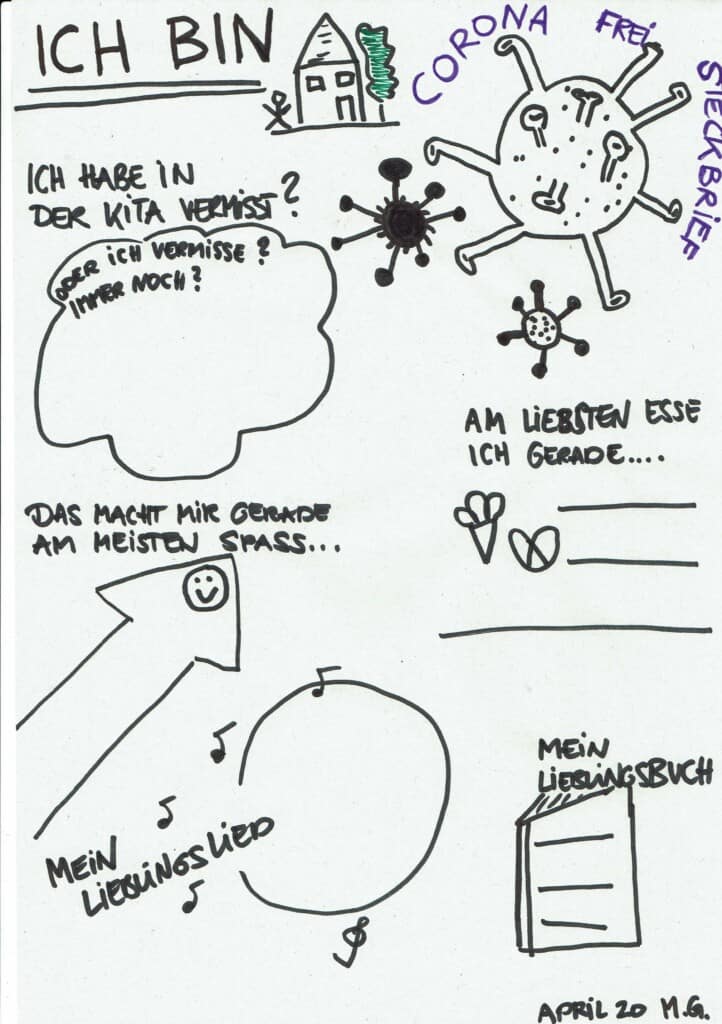 ICH BIN
CORONA FREI STECKBRIEF
ICH HABE IN
DER KITA VERMISST?
ODER ICH VERMISSE?
IMMER NOCH?
AM LIEBSTEN ESSE
ICH GERADE....
DAS MACHT MIR GERADE
AM MEISTEN SPASS...
MEIN
LIEBLINGSLIED
MEIN
LIEBLINGSBUCH
APRIL 20 M.G.